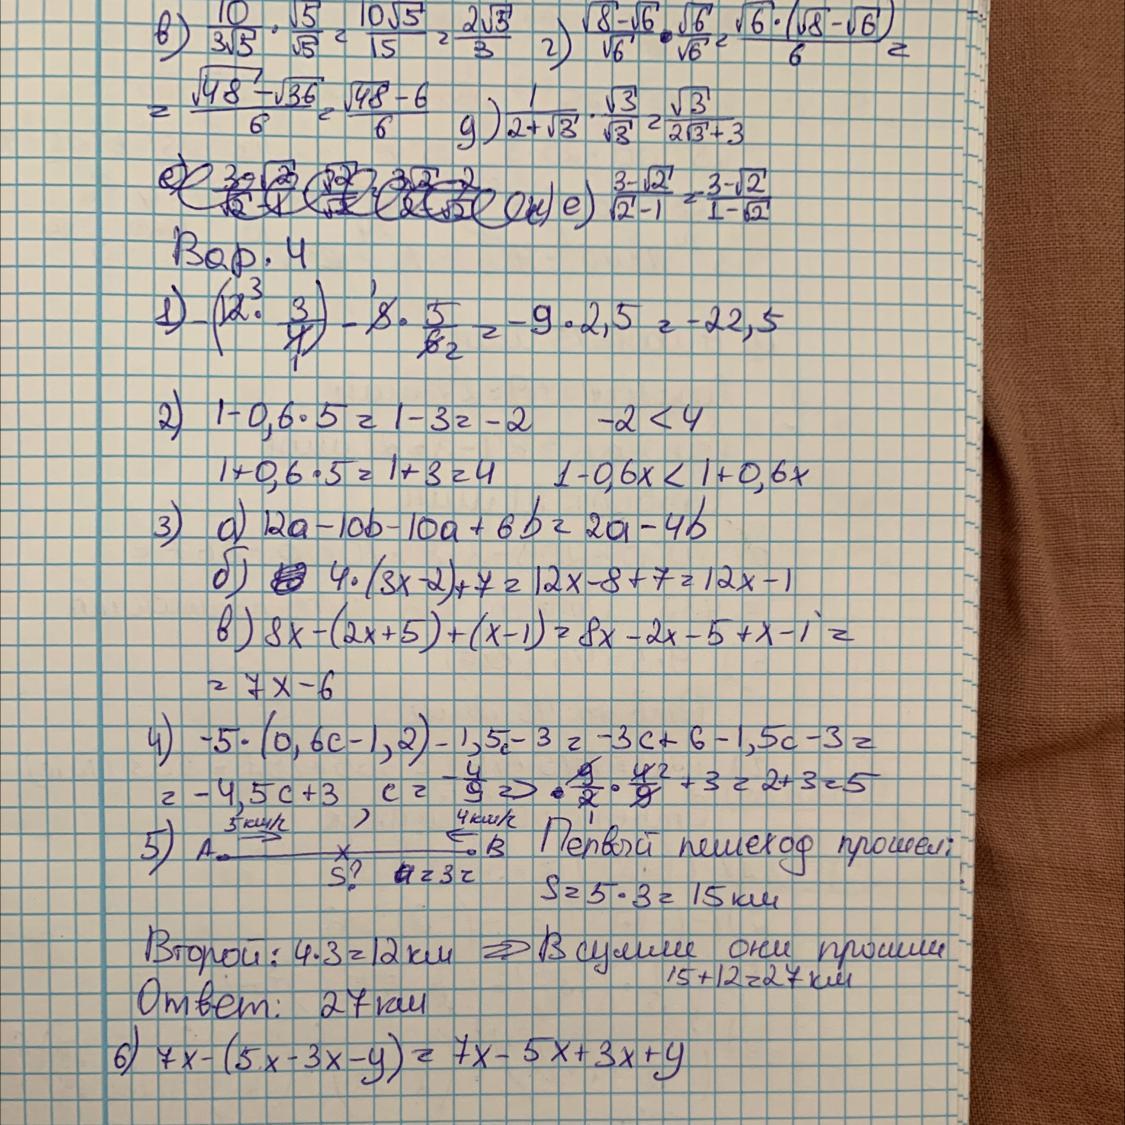 в) 10/3√5 · √5/√5 = 10√5/15 = 2√5/3 г) √8-√6/√6 · √6/√6 = √6·(√8-√6)/6 =
= √48-√36/6 = √48-6/6 д) 1/2+√3 · √3/√3 = √3/2√3+3
е) 3-√2/√2-1 = 3-√2/1-√2
Вар. 4
1) -(12³ · 3/4) - 8 · 5/6 2 = -9 · 2,5 = -22,5
2) 1-0,6·5 = 1-3 = -2 -2 < 4
1+0,6·5 = 1+3 = 4 1-0,6x < 1+0,6x
3) а) 12a-10b-10a+6b = 2a-4b
б) 4·(3x-2)+7 = 12x-8+7 = 12x-1
в) 8x-(2x+5)+(x-1) = 8x-2x-5+x-1 =
= 7x-6
4) -5·(0,6c-1,2)-1,5c-3 = -3c+6-1,5c-3 =
= -4,5c+3, c = -4/9 => 9/2 · 4/9 2 + 3 = 2+3 = 5
5) A 5км/ч 4км/ч B Первый пешеход прошел:
S? t=3ч S = 5·3 = 15 км
Второй: 4·3 = 12 км => В сумме они прошли
15+12=27 км
Ответ: 27 км
6) 7x-(5x-3x-y) = 7x-5x+3x+y